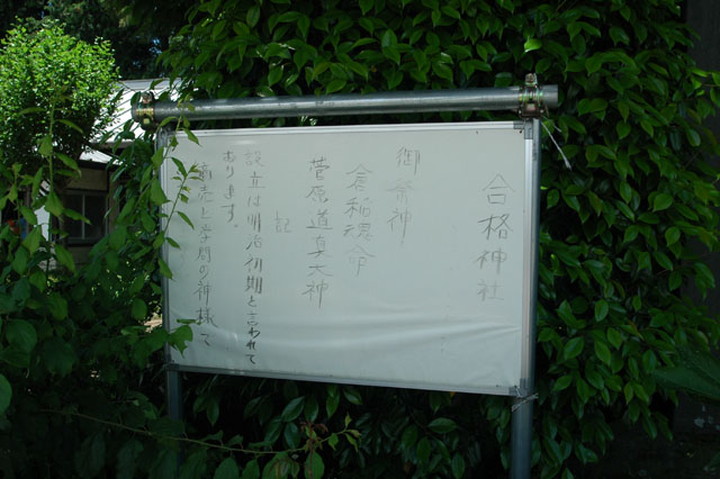 合格神社
御祭神
倉稲魂命
菅原道真大神
記
設立は明治初期と言われて
あります。
商売と学問の神様で